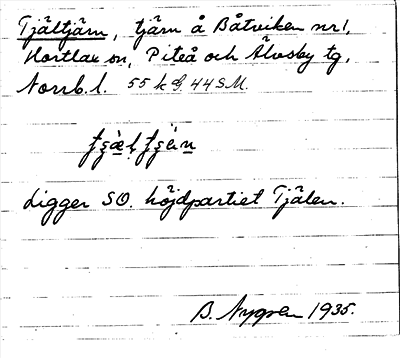 Tjältjärn, tjärn å Båtviken nr 1,
Hortlax sn, Piteå och Älvsby tg,
Norrb. l. 55 k G. 44 S M.
Ligger SO. höjdpartiet Tjälen.
B. Nygren 1935.